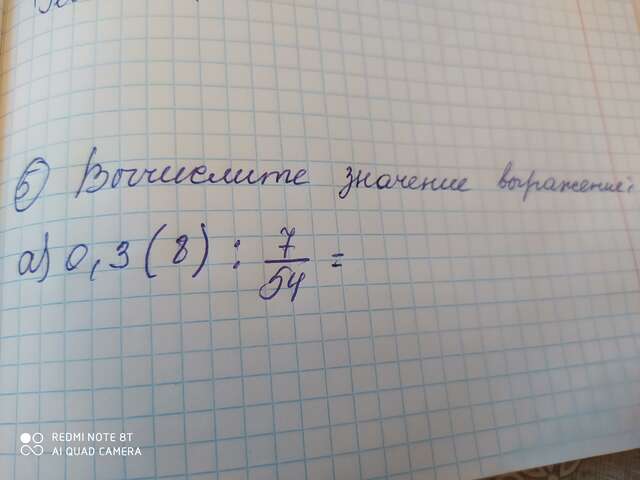 5) Вычислите значение выражений:
а) 0,3(8) : 7/54 =
REDMI NOTE 8T
AI QUAD CAMERA